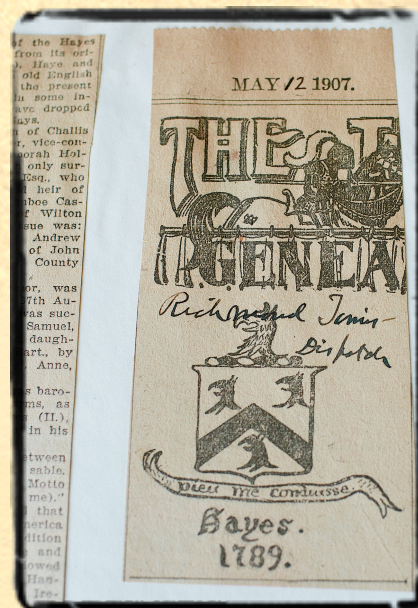 of the Hayes
from its ori-
). Haye and
old English
the present
in some in-
ave dropped
ays.
n of Challis
r, vice-con-
norah Hol-
only sur-
Esq., who
d heir of
nboe Cas-
f Wilton
sue was:
Andrew
of John
County
or, was
7th Au-
was suc-
Samuel,
daugh-
art., by
Anne,
s baro-
ms, as
(II.),
in his
etween
sable.
Motto
me)."
d that
merica
dition
and
lowed
Han-
Ire-
MAY 12 1907.
THE
GENEA
Richmond Times-
Dispatch
Dieu me conduisse.
Hayes.
1789.